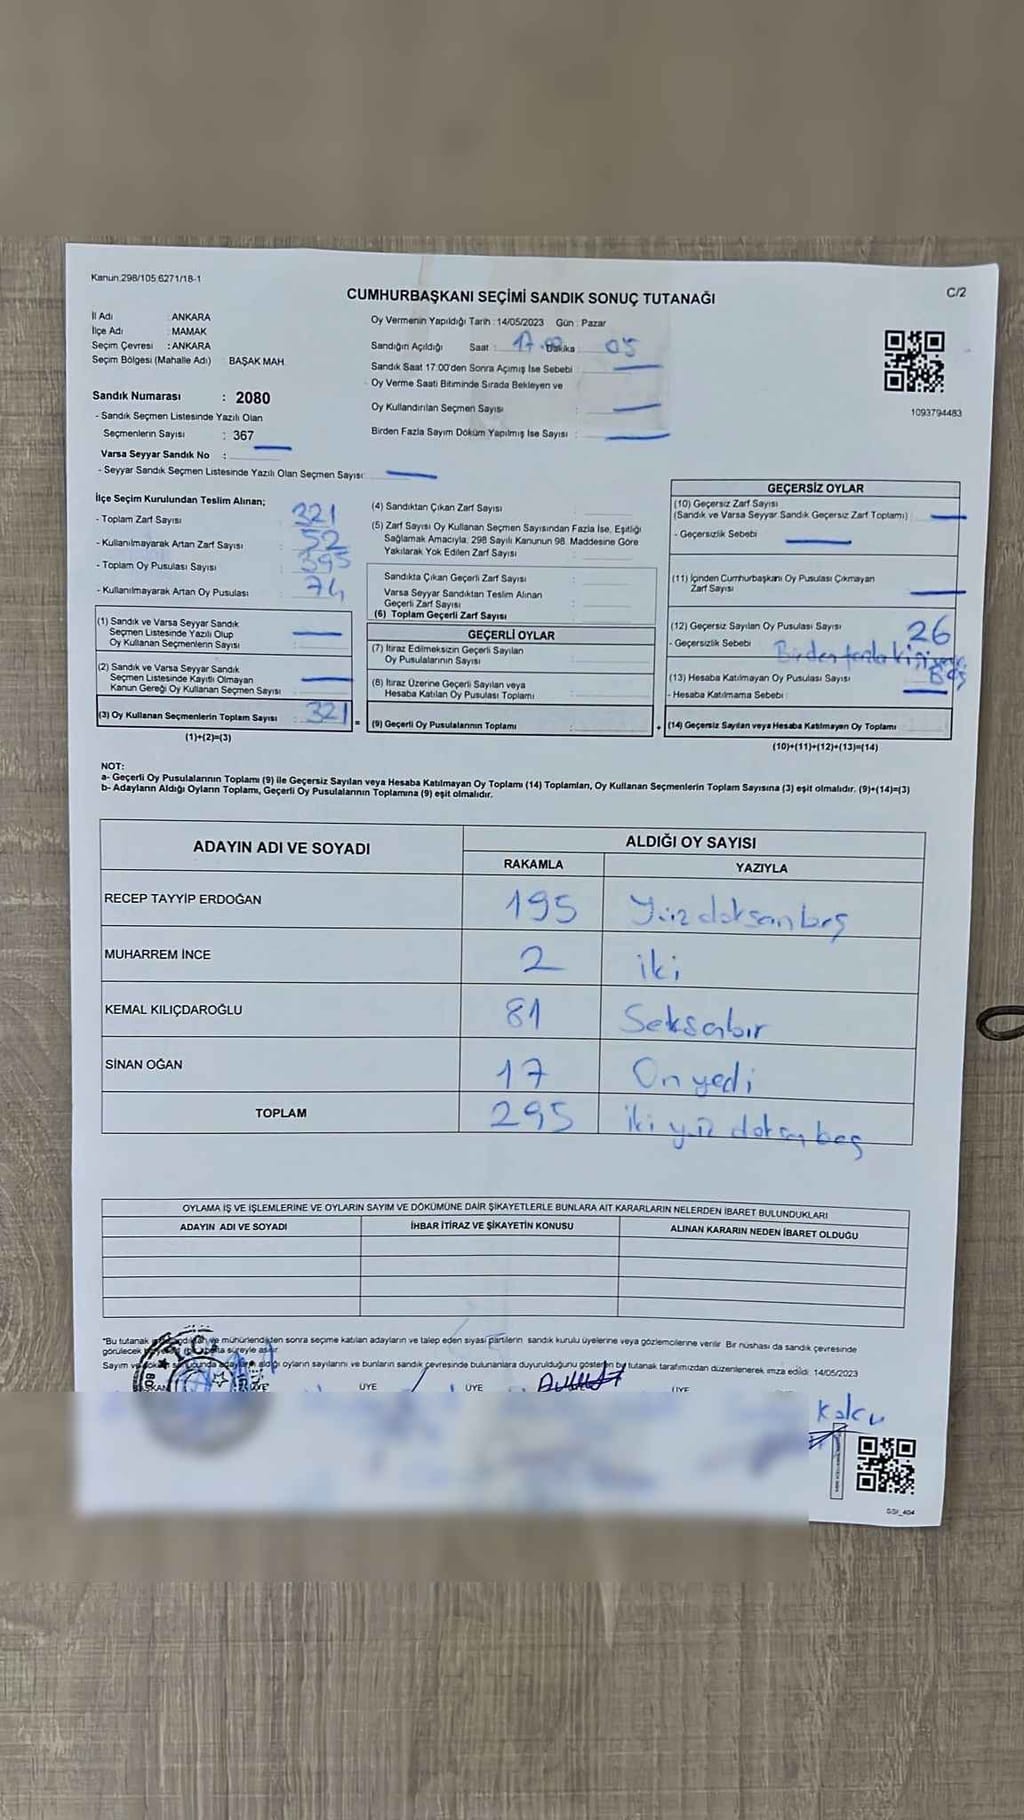 Kanun.298/105.6271/18-1
C/2
CUMHURBAŞKANI SEÇİMİ SANDIK SONUÇ TUTANAĞI
İl Adı : ANKARA
İlçe Adı : MAMAK
Seçim Çevresi : ANKARA
Seçim Bölgesi (Mahalle Adı) BAŞAK MAH
Sandık Numarası : 2080
- Sandık Seçmen Listesinde Yazılı Olan
Seçmenlerin Sayısı : 367
Varsa Seyyar Sandık No :
- Seyyar Sandık Seçmen Listesinde Yazılı Olan Seçmen Sayısı
Oy Vermenin Yapıldığı Tarih : 14/05/2023 Gün : Pazar
Sandığın Açıldığı Saat : 17 Dakika 05
Sandık Saat 17.00'den Sonra Açımış İse Sebebi :
- Oy Verme Saati Bitiminde Sırada Bekleyen ve
Oy Kullandırılan Seçmen Sayısı :
Birden Fazla Sayım Döküm Yapılmış İse Sayısı :
1093794483
İlçe Seçim Kurulundan Teslim Alınan;
- Toplam Zarf Sayısı : 321
- Kullanılmayarak Artan Zarf Sayısı : 52
- Toplam Oy Pusulası Sayısı : 395
- Kullanılmayarak Artan Oy Pusulası : 74
(1) Sandık ve Varsa Seyyar Sandık
Seçmen Listesinde Yazılı Olup
Oy Kullanan Seçmenlerin Sayısı
(2) Sandık ve Varsa Seyyar Sandık
Seçmen Listesinde Kayıtlı Olmayan
Kanun Gereği Oy Kullanan Seçmen Sayısı
(3) Oy Kullanan Seçmenlerin Toplam Sayısı : 321
(1)+(2)=(3)
(4) Sandıktan Çıkan Zarf Sayısı
(5) Zarf Sayısı Oy Kullanan Seçmen Sayısından Fazla İse, Eşitliği
Sağlamak Amacıyla, 298 Sayılı Kanunun 98. Maddesine Göre
Yakılarak Yok Edilen Zarf Sayısı
Sandıkta Çıkan Geçerli Zarf Sayısı
Varsa Seyyar Sandıktan Teslim Alınan
Geçerli Zarf Sayısı
(6) Toplam Geçerli Zarf Sayısı
GEÇERLİ OYLAR
(7) İtiraz Edilmeksizin Geçerli Sayılan
Oy Pusulalarının Sayısı
(8) İtiraz Üzerine Geçerli Sayılan veya
Hesaba Katılan Oy Pusulası Toplamı
= (9) Geçerli Oy Pusulalarının Toplamı
GEÇERSİZ OYLAR
(10) Geçersiz Zarf Sayısı
(Sandık ve Varsa Seyyar Sandık Geçersiz Zarf Toplamı)
- Geçersizlik Sebebi
(11) İçinden Cumhurbaşkanı Oy Pusulası Çıkmayan
Zarf Sayısı
(12) Geçersiz Sayılan Oy Pusulası Sayısı 26
- Geçersizlik Sebebi : Birden fazla kişiye
(13) Hesaba Katılmayan Oy Pusulası Sayısı
- Hesaba Katılmama Sebebi :
+ (14) Geçersiz Sayılan veya Hesaba Katılmayan Oy Toplamı
(10)+(11)+(12)+(13)=(14)
NOT:
a- Geçerli Oy Pusulalarının Toplamı (9) ile Geçersiz Sayılan veya Hesaba Katılmayan Oy Toplamı (14) Toplamları, Oy Kullanan Seçmenlerin Toplam Sayısına (3) eşit olmalıdır. (9)+(14)=(3)
b- Adayların Aldığı Oyların Toplamı, Geçerli Oy Pusulalarının Toplamına (9) eşit olmalıdır.
ADAYIN ADI VE SOYADI
ALDIĞI OY SAYISI
RAKAMLA YAZIYLA
RECEP TAYYİP ERDOĞAN 195 Yüz doksan beş
MUHARREM İNCE 2 iki
KEMAL KILIÇDAROĞLU 81 Seksabir
SİNAN OĞAN 17 On yedi
TOPLAM 295 iki yüz doksan beş
OYLAMA İŞ VE İŞLEMLERİNE VE OYLARIN SAYIM VE DÖKÜMÜNE DAİR ŞİKAYETLERLE BUNLARA AİT KARARLARIN NELERDEN İBARET BULUNDUKLARI
ADAYIN ADI VE SOYADI İHBAR İTİRAZ VE ŞİKAYETİN KONUSU ALINAN KARARIN NEDEN İBARET OLDUĞU
*Bu tutanak mühürlendikten sonra seçime katılan adayların ve talep eden siyasi partilerin sandık kurulu üyelerine veya gözlemcilerine verilir. Bir nüshası da sandık çevresinde
görülecek bir hafta süreyle asılır.
Sayım ve adayların aldığı oyların sayılarını ve bunların sandık çevresinde bulunanlara duyurulduğunu gösteren bu tutanak tarafımızdan düzenlenerek imza edildi. 14/05/2023
BAŞKAN ÜYE ÜYE ÜYE ÜYE
SSI_404